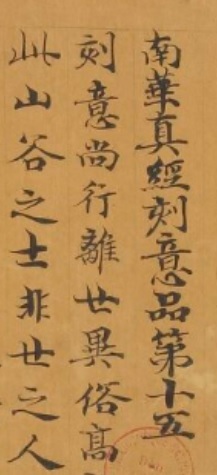 南華真經刻意品第十五
刻意尚行離世異俗髙
此山谷之士非世之人